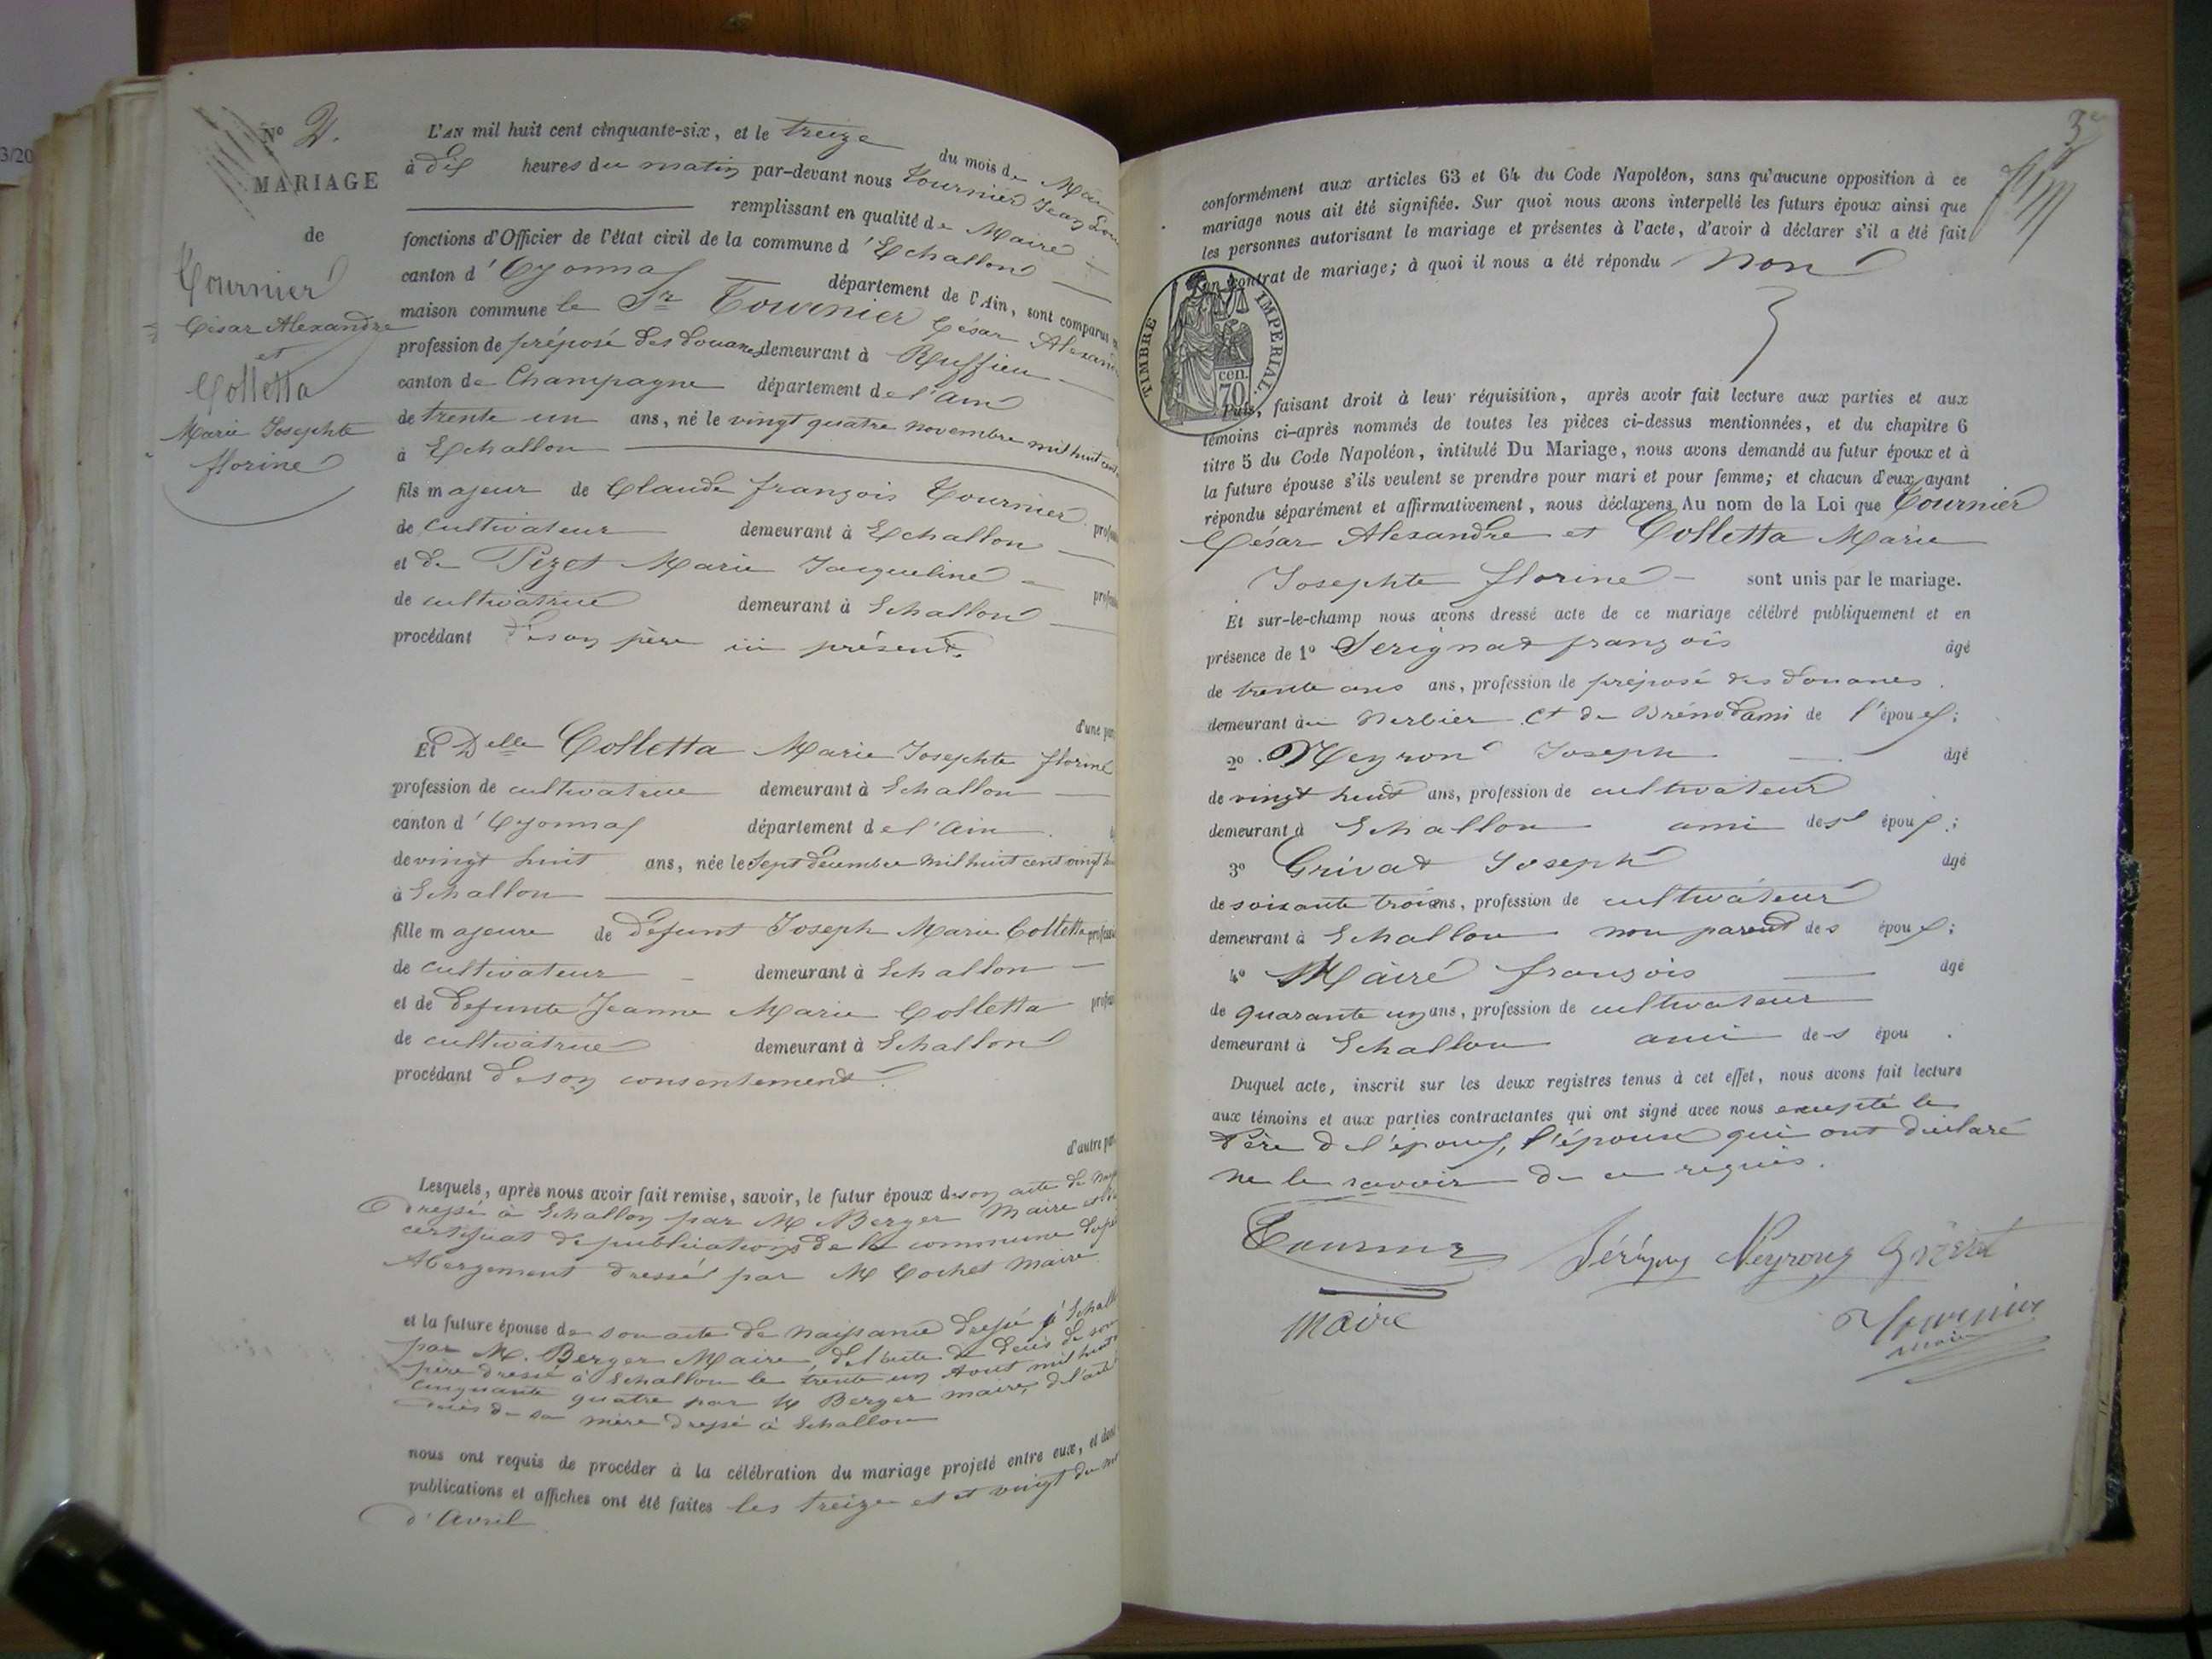 N° 2.
MARIAGE
de
Tournier
César Alexandre
et
Colletta
Marie Josephte
florine
L'AN mil huit cent cinquante-six, et le treize du mois de Mai
à dix heures du matin par-devant nous Tournier Jean
remplissant en qualité de Maire
fonctions d'Officier de l'état civil de la commune d'Echallon
canton d'Oyonnax département de l'Ain, sont comparus
maison commune le Sr Tournier César
profession de préposé des douanes demeurant à Ruffieu
canton de Champagne département de l'ain
de trente un ans, né le vingt quatre novembre mil huit
à Echallon
fils majeur de Claude françois Tournier
de cultivateur demeurant à Echallon
et de Pezet Marie Jacqueline
de cultivatrice demeurant à Echallon
procédant de son père ici présent.
d'une part
Et Delle Colletta Marie Josephte florine
profession de cultivatrice demeurant à Echallon
canton d'Oyonnax département de l'Ain
de vingt huit ans, née le Sept décembre mil huit cent vingt
à Echallon
fille majeure de défunt Joseph Marie Colletta
de cultivateur demeurant à Echallon
et de défunte Jeanne Marie Colletta
de cultivatrice demeurant à Echallon
procédant de son consentement.
d'autre part
Lesquels, après nous avoir fait remise, savoir, le futur époux de son acte de
dressé à Echallon par M Berger Maire et
certificat de publications de la commune
Abergement dressé par M Cochet Maire
et la future épouse de son acte de naissance dressé à
par M. Berger Maire, de l'acte de décès de son
père dressé à Echallon le trente un Aout mil huit
cinquante quatre par M Berger maire, de l'acte
décès de sa mère dressé à Echallon
nous ont requis de procéder à la célébration du mariage projeté entre eux, et dont
publications et affiches ont été faites les treize et et vingt du
d'Avril
3e
conformément aux articles 63 et 64 du Code Napoléon, sans qu'aucune opposition à ce
mariage nous ait été signifiée. Sur quoi nous avons interpellé les futurs époux ainsi que
les personnes autorisant le mariage et présentes à l'acte, d'avoir à déclarer s'il a été fait
un contrat de mariage; à quoi il nous a été répondu Non
TIMBRE IMPERIAL
cen.
70
Puis, faisant droit à leur réquisition, après avoir fait lecture aux parties et aux
témoins ci-après nommés de toutes les pièces ci-dessus mentionnées, et du chapitre 6
titre 5 du Code Napoléon, intitulé Du Mariage, nous avons demandé au futur époux et à
la future épouse s'ils veulent se prendre pour mari et pour femme; et chacun d'eux ayant
répondu séparément et affirmativement, nous déclarons Au nom de la Loi que Tournier
César Alexandre et Colletta Marie
Josephte florine sont unis par le mariage.
Et sur-le-champ nous avons dressé acte de ce mariage célébré publiquement et en
présence de 1° Serignat françois âgé
de trente ans ans, profession de préposé des douanes.
demeurant au Nerbier Ct de Brénod ami de l'époux;
2° Neyron Joseph âgé
de vingt huit ans, profession de cultivateur
demeurant à Echallon ami des époux;
3° Grivat Joseph âgé
de soixante trois ans, profession de cultivateur
demeurant à Echallon non parent des époux;
4° Maire françois âgé
de quarante un ans, profession de cultivateur
demeurant à Echallon ami des épou.
Duquel acte, inscrit sur les deux registres tenus à cet effet, nous avons fait lecture
aux témoins et aux parties contractantes qui ont signé avec nous excepté le
Père de l'époux, l'épouse qui ont déclaré
ne le savoir de ce requis.
Neyroug Grivat
maire
Tournier
maire